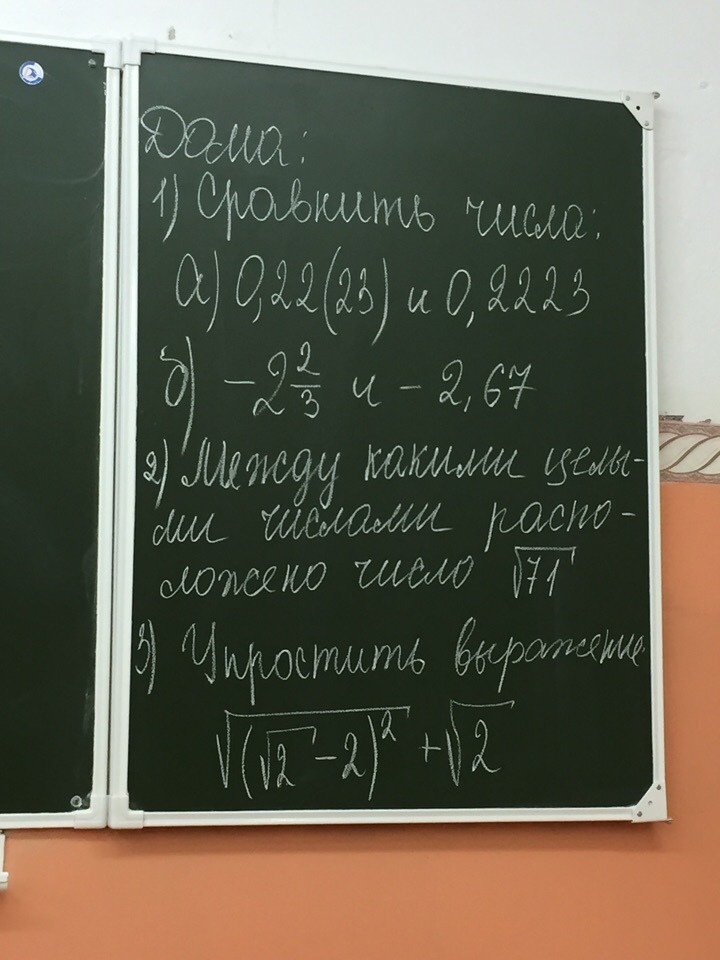 Дома:
1) Сравнить числа:
а) 0,22(23) и 0,2223
б) -2 2/3 и -2,67
2) Между какими целы-
ми числами распо-
ложено число √71
3) Упростить выражение
√((√2-2)²) + √2